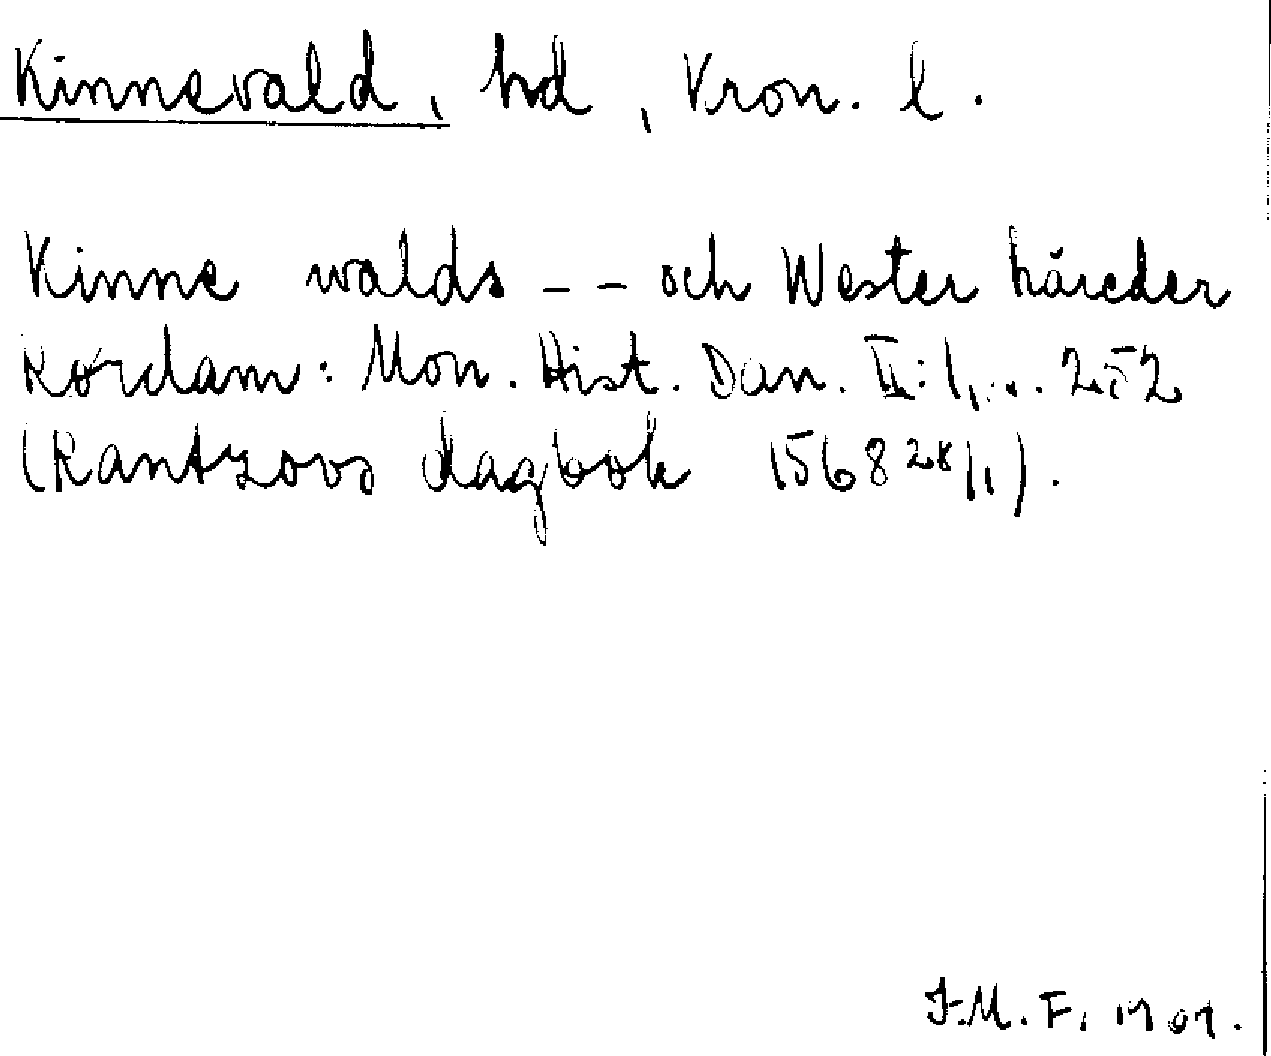 Kinnevald, hd, Kron. l.
Kinne walds -- och Wester häreder
Rørdam: Mon. Hist. Dan. II:1, s. 252
(Rantzovs dagbok 1568 28/1).
J.M.F. 1909.